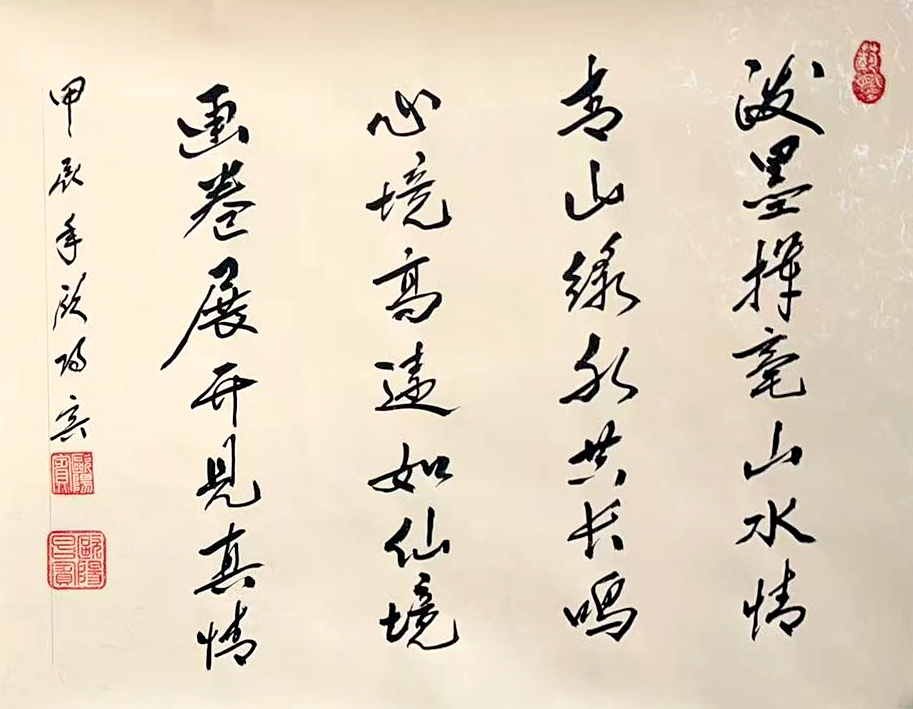 泼墨挥毫山水情
青山绿水共长鸣
心境高遠如仙境
画卷展开見真情
甲辰年欧阳宾
歐陽賓